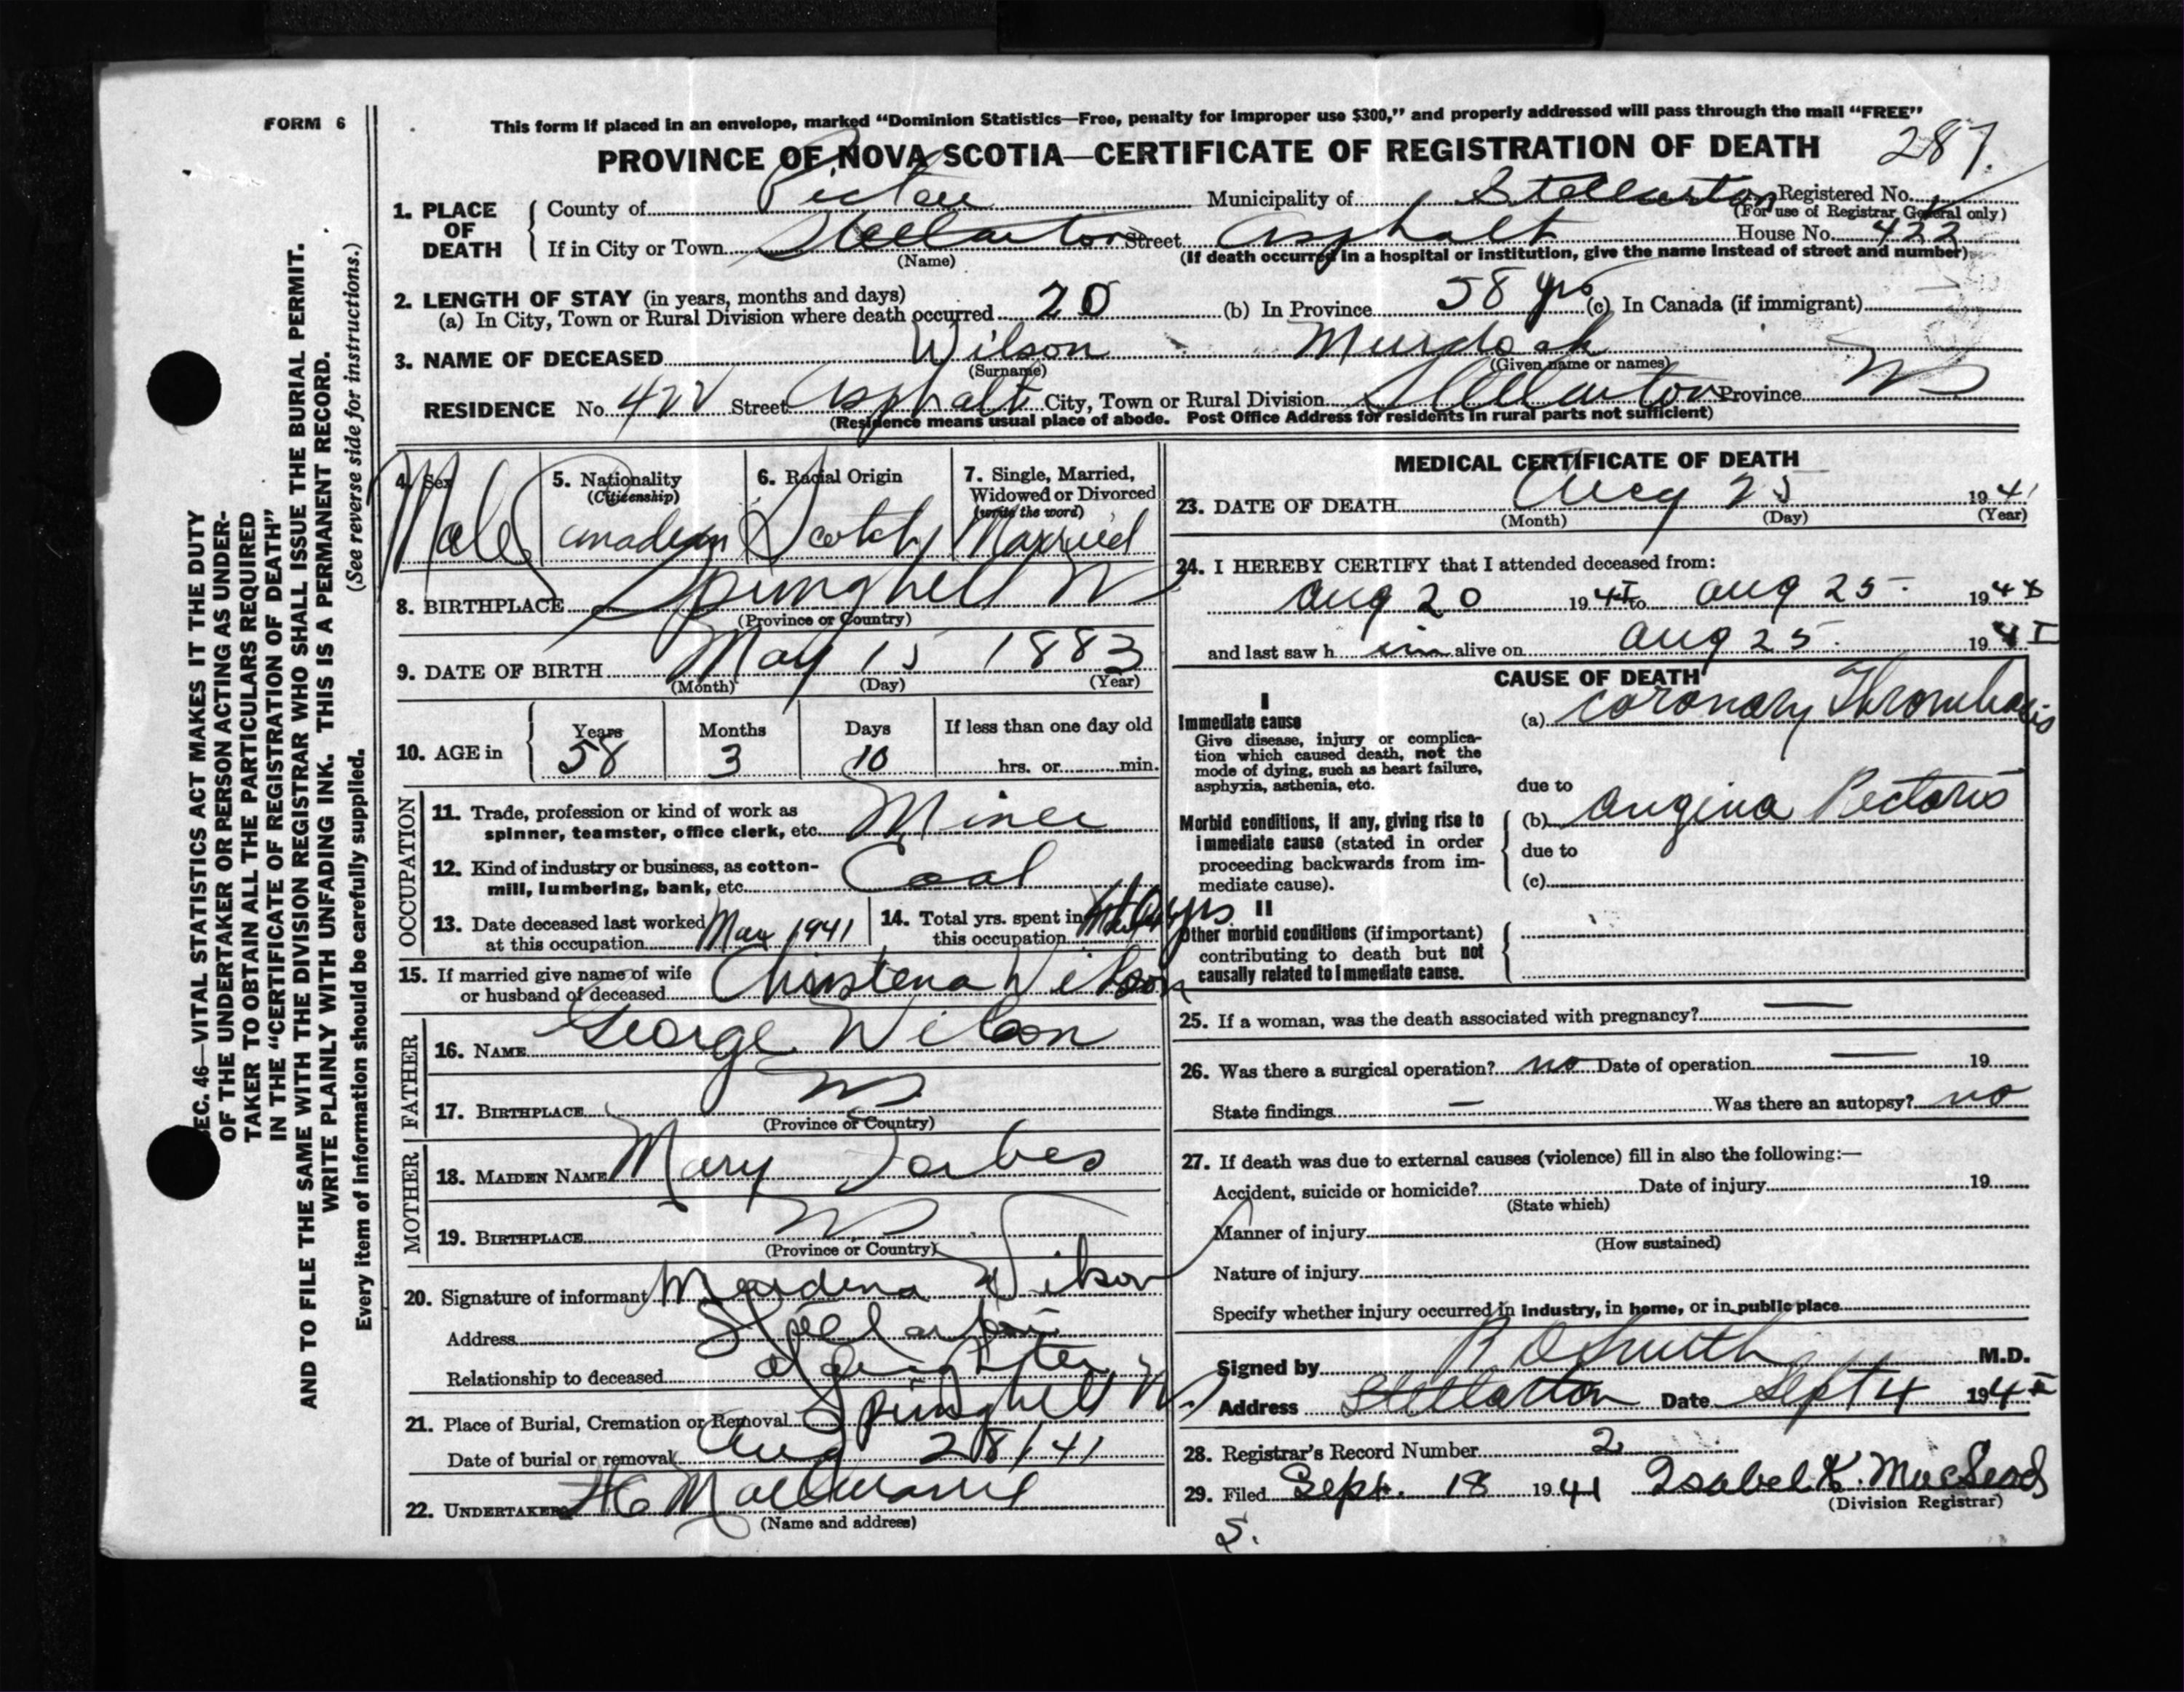 FORM 6
This form if placed in an envelope, marked "Dominion Statistics—Free, penalty for improper use $300," and properly addressed will pass through the mail "FREE"
PROVINCE OF NOVA SCOTIA—CERTIFICATE OF REGISTRATION OF DEATH
287.
1. PLACE OF DEATH
County of Pictou Municipality of Stellarton Registered No.
(For use of Registrar General only)
If in City or Town Stellarton Street Asphalt House No. 422
(Name) (If death occurred in a hospital or institution, give the name instead of street and number)
2. LENGTH OF STAY (in years, months and days)
(a) In City, Town or Rural Division where death occurred 20 (b) In Province 58 yrs (c) In Canada (if immigrant)
3. NAME OF DECEASED Wilson Murdoch
(Surname) (Given name or names)
RESIDENCE No. 422 Street Asphalt City, Town or Rural Division Stellarton Province NS
(Residence means usual place of abode. Post Office Address for residents in rural parts not sufficient)
4. Sex
Male
5. Nationality
(Citizenship)
Canadian
6. Racial Origin
Scotch
7. Single, Married,
Widowed or Divorced
(write the word)
Married
8. BIRTHPLACE Springhill NS
(Province or Country)
9. DATE OF BIRTH May 15 1883
(Month) (Day) (Year)
10. AGE in
Years Months Days If less than one day old
58 3 10 hrs. or min.
OCCUPATION
11. Trade, profession or kind of work as
spinner, teamster, office clerk, etc. Miner
12. Kind of industry or business, as cotton-
mill, lumbering, bank, etc. Coal
13. Date deceased last worked
at this occupation Mar 1941
14. Total yrs. spent in
this occupation yrs
15. If married give name of wife
or husband of deceased Christena Wilson
FATHER
16. NAME George Wilson
17. BIRTHPLACE NS
(Province or Country)
MOTHER
18. MAIDEN NAME Mary Forbes
19. BIRTHPLACE NS
(Province or Country)
20. Signature of informant Murdena Wilson
Address Stellarton
Relationship to deceased daughter
21. Place of Burial, Cremation or Removal Springhill NS
Date of burial or removal Aug 28/41
22. UNDERTAKER
(Name and address)
MEDICAL CERTIFICATE OF DEATH
23. DATE OF DEATH Aug 25 1941
(Month) (Day) (Year)
24. I HEREBY CERTIFY that I attended deceased from:
Aug 20 1941 to Aug 25 - 1941
and last saw h im alive on Aug 25. 1941
CAUSE OF DEATH
I
Immediate cause
Give disease, injury or complica-
tion which caused death, not the
mode of dying, such as heart failure,
asphyxia, asthenia, etc.
(a) Coronary Thrombosis
due to
Morbid conditions, if any, giving rise to
immediate cause (stated in order
proceeding backwards from im-
mediate cause).
(b) Angina Pectoris
due to
(c)
II
Other morbid conditions (if important)
contributing to death but not
causally related to immediate cause.
25. If a woman, was the death associated with pregnancy? —
26. Was there a surgical operation? no Date of operation — 19
State findings — Was there an autopsy? no
27. If death was due to external causes (violence) fill in also the following:—
Accident, suicide or homicide? Date of injury 19
(State which)
Manner of injury
(How sustained)
Nature of injury
Specify whether injury occurred in industry, in home, or in public place
Signed by R D Smith M.D.
Address Stellarton Date Sept 4 1941
28. Registrar's Record Number 2
29. Filed Sept. 18 1941 Isabel K. MacLeod
(Division Registrar)
S.
SEC. 46—VITAL STATISTICS ACT MAKES IT THE DUTY
OF THE UNDERTAKER OR PERSON ACTING AS UNDER-
TAKER TO OBTAIN ALL THE PARTICULARS REQUIRED
IN THE "CERTIFICATE OF REGISTRATION OF DEATH"
AND TO FILE THE SAME WITH THE DIVISION REGISTRAR WHO SHALL ISSUE THE BURIAL PERMIT.
WRITE PLAINLY WITH UNFADING INK. THIS IS A PERMANENT RECORD.
Every item of information should be carefully supplied. (See reverse side for instructions.)